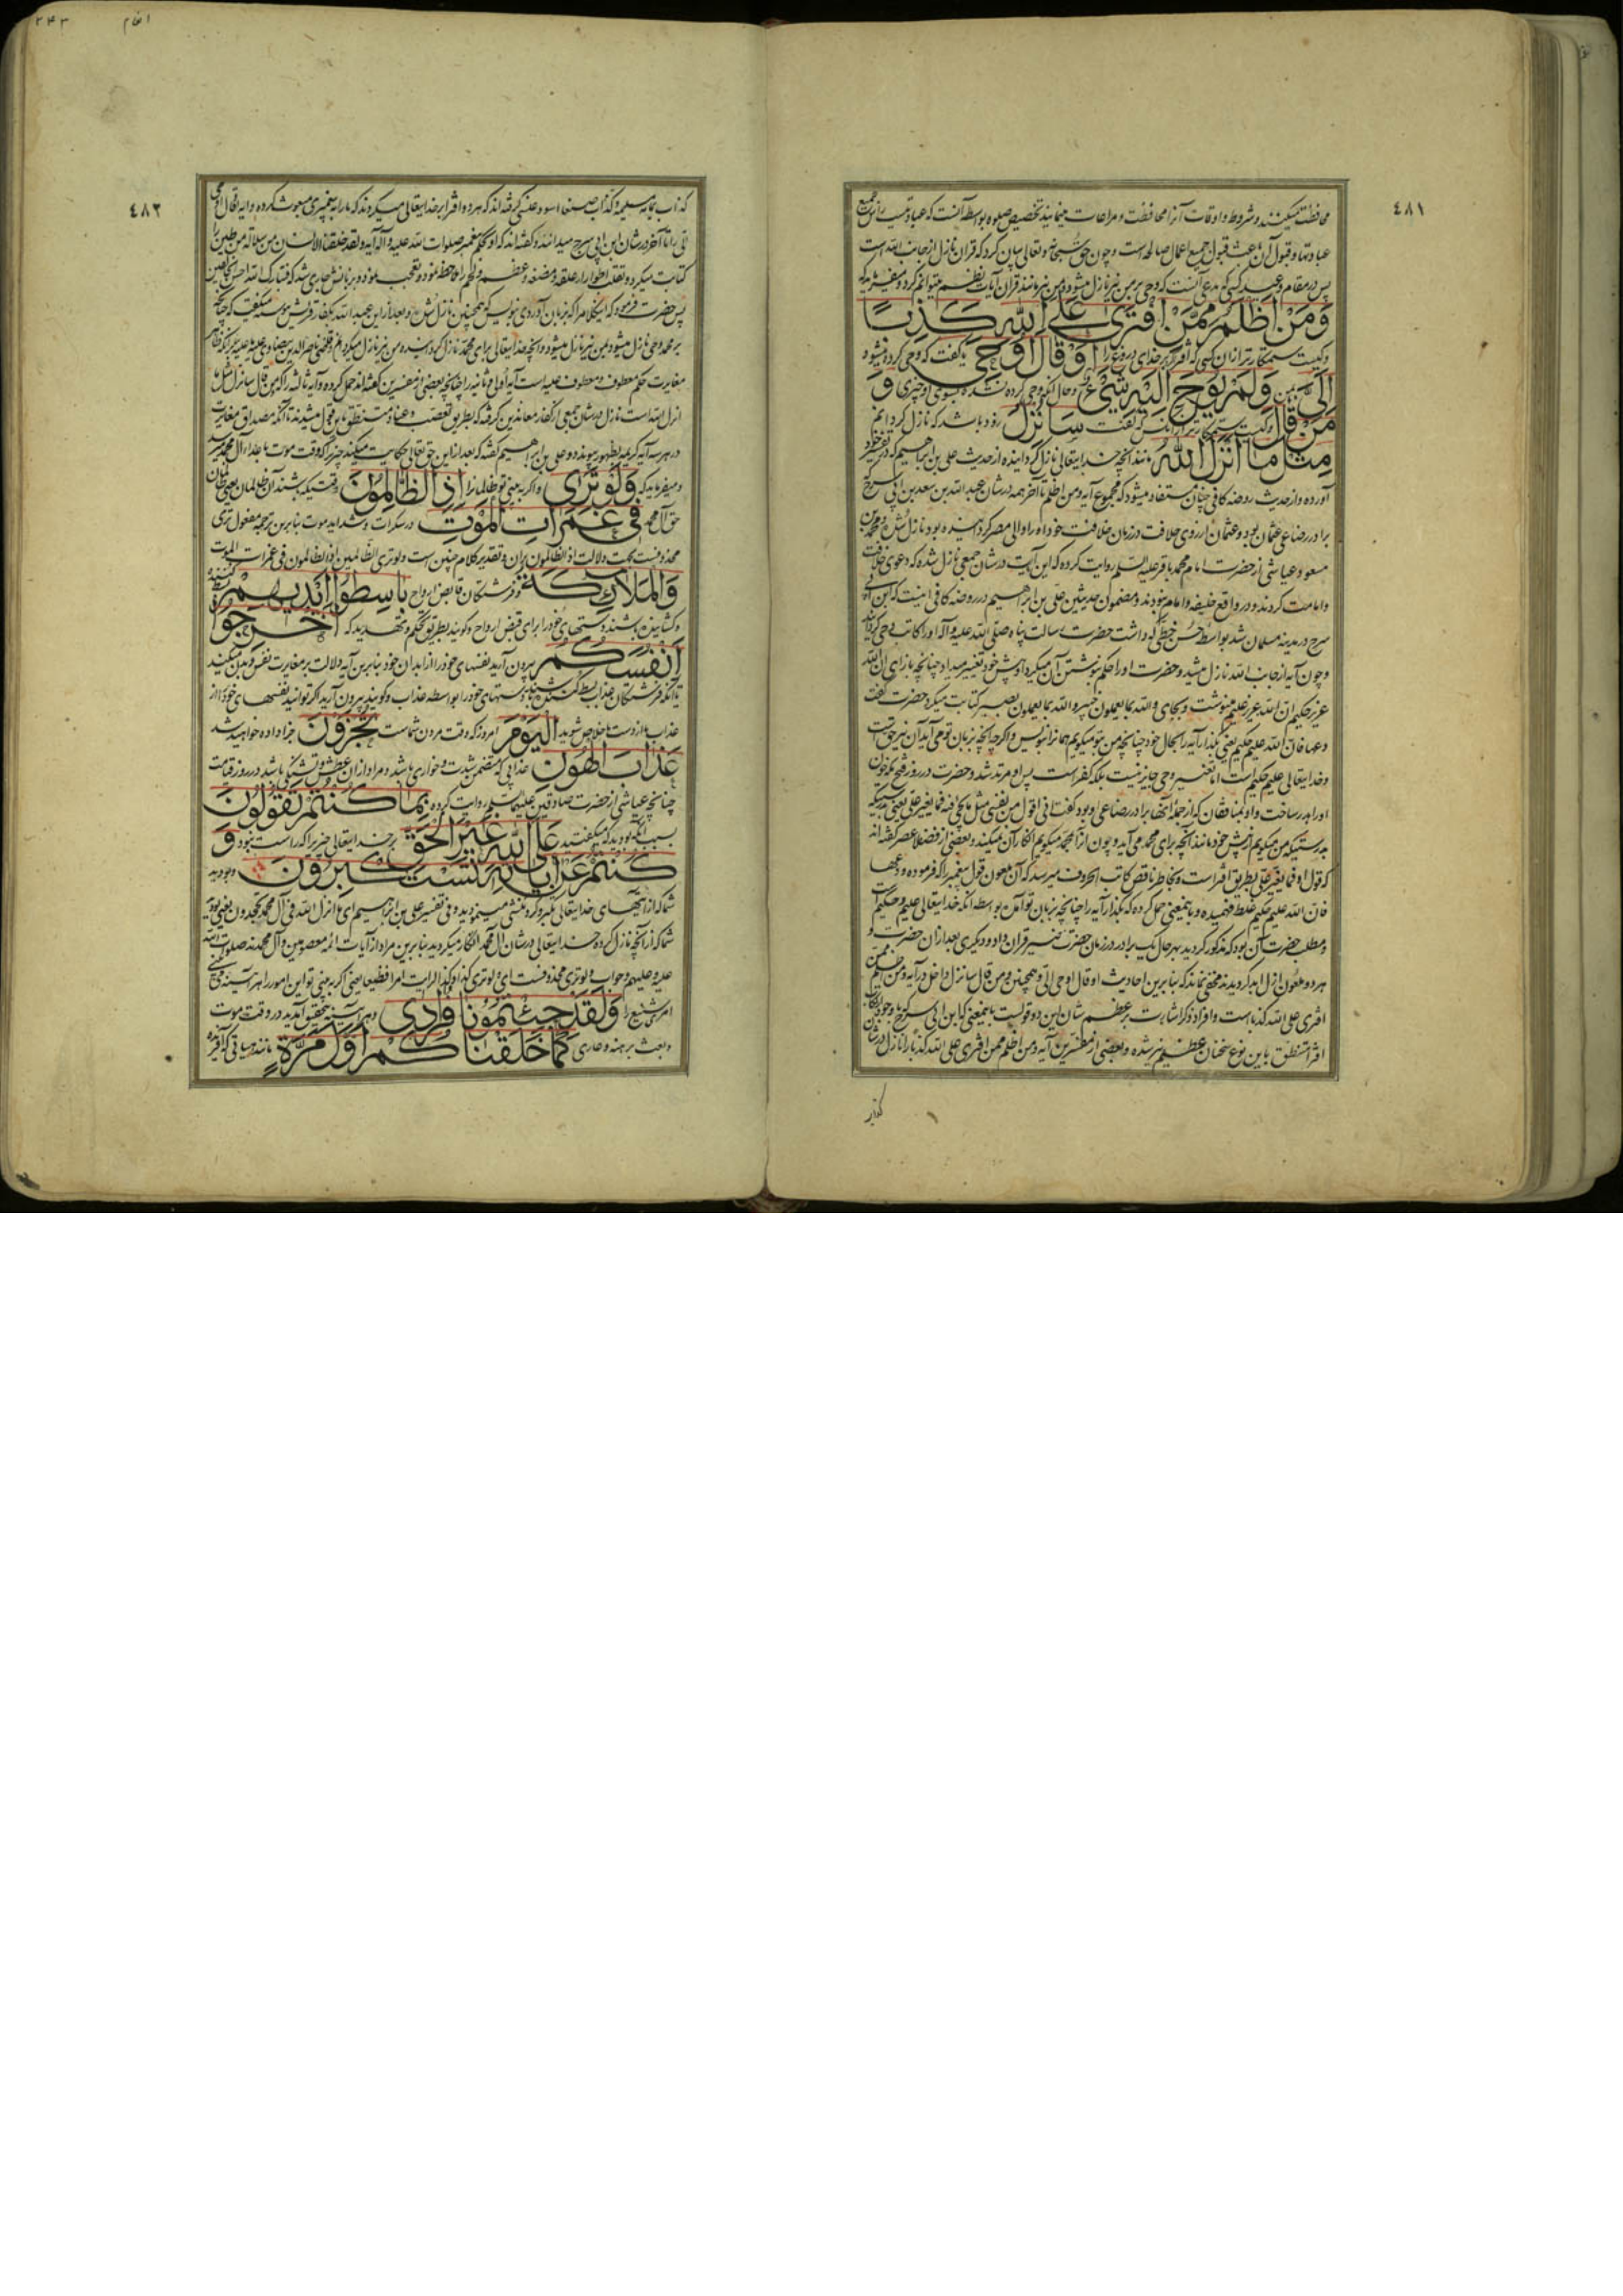 ٤٨١
محافظت میکنند و شروط و اوقات آنرا محافظت و مراعات مینمایند تخصیص صلوه بواسطه آنست که
عبادتها و قبول آن باعث قبول جمیع اعمال صالحه است و چون حق سبحانه و تعالی بیان کرد که قران نازل از جانب الله است
پس در مقام وعید کسی که مدعی آنست که وحی بر من نیز نازل میشود و من نیز مانند قران آیات بنظم میتوانم کرد
وَمَنْ أَظْلَمُ مِمَّنِ افْتَرَى عَلَى اللهِ كَذِبًا
و کیست ستمکارتر از آن کسی که افترا کند بر خدای دروغ را أَوْ قَالَ أُوحِيَ یا گفت که وحی کرده میشود
إِلَيَّ بمن وَلَمْ يُوحَ إِلَيْهِ شَيْءٌ و حال آنکه وحی کرده نشده بسوی او چیزی وَ
مَنْ قَالَ و کیست ستمکارتر از آنکس که گفت سَأُنْزِلُ زود باشد که نازل گردانم
مِثْلَ مَا أَنْزَلَ اللهُ مانند آنچه خدایتعالی نازل گردانیده از حدیث علی بن ابراهیم که در تفسیر خود
آورده و از حدیث روضه کافی چنان مستفاد میشود که مجموع آیه و من اظلم تا آخر همه در شان عبد الله بن سعد بن ابی سرح
برادر رضاعی عثمان بود و عثمان از روی خلافت در زمان خلافت خود او را والی مصر گردانیده بود نازل شده
مسعود عیاشی از حضرت امام محمد باقر علیه السلام روایت کرده که این آیت در شان جمعی نازل شده که دعوی خلافت
و امامت کردند و در واقع خلیفه و امام نبودند و مضمون حدیث علی بن ابراهیم و در روضه کافی اینست که ابن ابی
سرح در مدینه مسلمان شد بواسطه حسن خطی که داشت حضرت رسالت پناه صلی الله علیه و آله او را کاتب وحی گردانید
و چون آیه از جانب الله نازل میشد و حضرت او را حکم بنوشتن آن میکرد او پیش خود تغییر میداد چنانچه بازای ان الله
عزیز حکیم ان الله علیم مینوشت و بجای و الله بما یعملون خبیر و الله بما یعملون بصیر کتابت میکرد حضرت گفت
دعها فان الله علیم حکیم یعنی بگذار آیه را بحال خود چنانچه من بتو میگویم همانرا بنویس و اگر چه آنچه بزبان تو می آید آن نیز حق است
و خدایتعالی علیم حکیم است اما تغییر وحی جایز نیست بلکه کفر است پس او مرتد شد و حضرت در روز فتح مکه خون
او را هدر ساخت و او بمنافقان که از جمله آنها برادر رضاعی او بود گفت انی اقول من نفسی مثل ما یجئ به فما یغیر علی یعنی بدرستیکه
بدرستیکه من میگویم از پیش خود مانند آنچه برای محمد می آید و چون از آنچه میگویم انکار آن نمیکند و بعضی از فضلاء عصر گفته اند
که قول او فما یغیر علی بطریق افترا است و بخاطر ناقص کاتب الحروف میرسد که آن ملعون قول پیغمبر را که فرموده دعها
فان الله علیم حکیم غلط فهمیده و باینمعنی حمل کرده که بگذار آیه را چنانچه بزبان تو آمده بواسطه آنکه خدایتعالی علیم و حکیم است
و مطلب حضرت آن بود که مذکور گردید بهر حال یک برادر در زمان حضرت تغییر قران داد و دیگری بعد از آن حضرت و
هر دو ملعون ازل و ابد گردیدند مخفی نماند که بنا برین احادیث او قال اوحی الی و همچنین و من قال سانزل داخل در آیه و من اظلم ممن
افتری علی الله کذبا است و افراد ذکر اشارت بر عظم شان این دو قول است باینمعنی که ابن ابی سرح
افترا تنطق باین نوع سخنان عظیم نیز شده و بعضی از مفسرین آیه و من اظلم ممن افتری علی الله کذبا را نازل در شان
کذاب
٢٤٣
انعام
٤٨٢
کذاب یمامه مسیلمه و کذاب صنعا اسود عنسی گرفته اند که هر دو افترا بر خدایتعالی میکردند که ما را به پیغمبری مبعوث کرده و آیه او قال اوحی
الی را تا آخر در شان ابن ابی سرح میدانند و گفته اند که او بحکم پیغمبر صلوات الله علیه و آله آیه و لقد خلقنا الانسان من سلالة من طین را
کتابت میکرد و تقلب اطوار از علقه و مضغه و عظم و لحم را ملاحظه نمود و تعجب نموده بر زبانش جاری شد که فتبارک الله احسن الخالقین
پس حضرت فرمود که اینکلام را که بزبان آوردی بنویس که همچنین نازل شده و بعد از این عبد الله بکفار قریش پیوسته میگفت که چنانچه
بر محمد وحی نازل میشود بمن نیز نازل میشود و آنچه خدایتعالی برای محمد نازل گردانیده من نیز نازل میکردم
مغایرت حکم معطوف و معطوف علیه است آیه اولی و ثانیه را چنانچه بعضی از مفسرین گفته اند حمل کرده و آیه ثالثه را که و من قال سانزل مثل ما
انزل الله است نازل در شان جمعی از کفار معاندین گرفته که بطریق تعصب و عناد متنطق باین قول میشدند تا آنکه مصداق مغایرت
در هر سه آیه کریمه بظهور پیوندد و علی بن ابراهیم گفته که بعد از این حق تعالی حکایت میکند چیزی را که وقت موت باعداء آل محمد میرسد
و میفرماید که وَلَوْ تَرَى و اگر به بینی تو ظالمانرا إِذِ الظَّالِمُونَ وقتیکه باشند آن ظالمان یعنی ظالمان
حق آل محمد فِي غَمَرَاتِ الْمَوْتِ در سکرات و شداید موت بنا برین ترجمه مفعول تری
محذوفست بجهت دلالت اذ الظالمون بر آن و تقدیر کلام چنین است و لو تری الظالمین اذ الظالمون فی غمرات الموت
وَالْمَلَائِكَةُ و فرشتگان قابض ارواح بَاسِطُوا أَيْدِيهِمْ
و کشاینده باشند دستهای خود را برای قبض ارواح و گویند بطریق تحکم و تهدید که أَخْرِجُوا
أَنْفُسَكُمُ بیرون آرید نفسهای خود را از ابدان خود بنا برین آیه دلالت بر مغایرت نفس و بدن میکند
یا آنکه فرشتگان عذاب بسط کننده باشند دستهای خود را بواسطه عذاب و گویند بیرون آرید اگر توانید نفسهای خود را از
عذاب ما از دست ما خلاص شوید الْيَوْمَ امروز که وقت مردن شماست تُجْزَوْنَ جزا داده خواهید شد
عَذَابَ الْهُونِ عذابی که متضمن شدت و خواری باشد و مراد از آن عطش و تشنگی باشد در روز قیامت
چنانچه عیاشی از حضرت صادق علیه السلام روایت کرده بِمَا كُنْتُمْ تَقُولُونَ
بسبب آنکه بودید که میگفتید عَلَى اللهِ غَيْرَ الْحَقِّ بر خدایتعالی چیزیرا که راست نبود وَ
كُنْتُمْ عَنْ آيَاتِهِ تَسْتَكْبِرُونَ و بودید
شما که از آیتهای خدایتعالی تکبر و گردنکشی مینمودید و در تفسیر علی بن ابراهیم ای ما انزل الله فی آل محمد تجحدون یعنی بودید
شما که از آنچه نازل کرده خدایتعالی در شان آل محمد انکار میکردید بنا برین مراد از آیات ائمه معصومین و آل محمدند صلوات الله
علیه و علیهم و جواب و لو تری محذوفست ای و لو تری کذا و کذا لرایت امرا فظیعا یعنی اگر به بینی تو این امور را هر آینه می بینی
امری شنیع را وَلَقَدْ جِئْتُمُونَا فُرَادَى و هر آینه بتحقیق آمدید در وقت موت
و بعث برهنه و عاری كَمَا خَلَقْنَاكُمْ أَوَّلَ مَرَّةٍ مانند حیاتی که آفریده